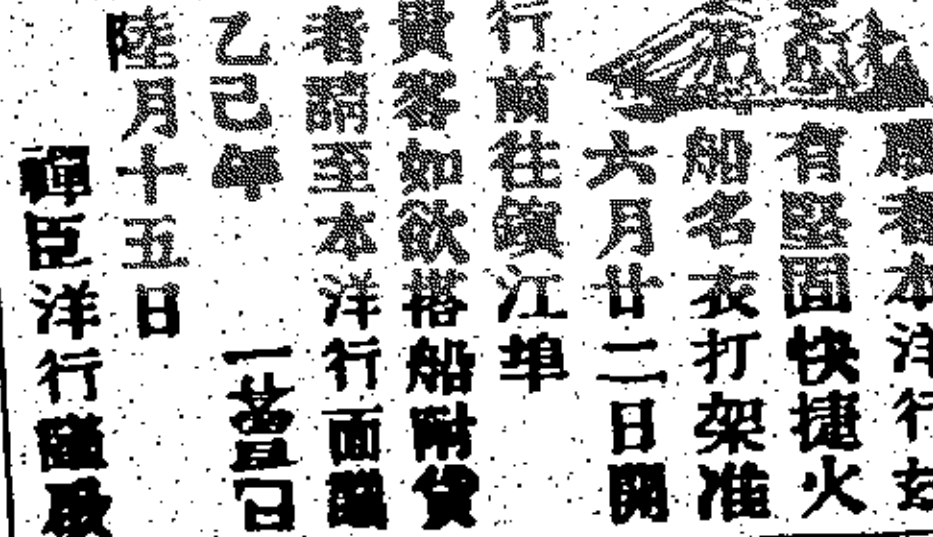 啟者本洋行茲
有堅固快捷火
船名衣打架准
六月廿二日開
行前往鑌江埠
貴客如欲搭船附貨
者請至本洋行面議
乙巳年
陸月十五日
禪臣洋行謹啟